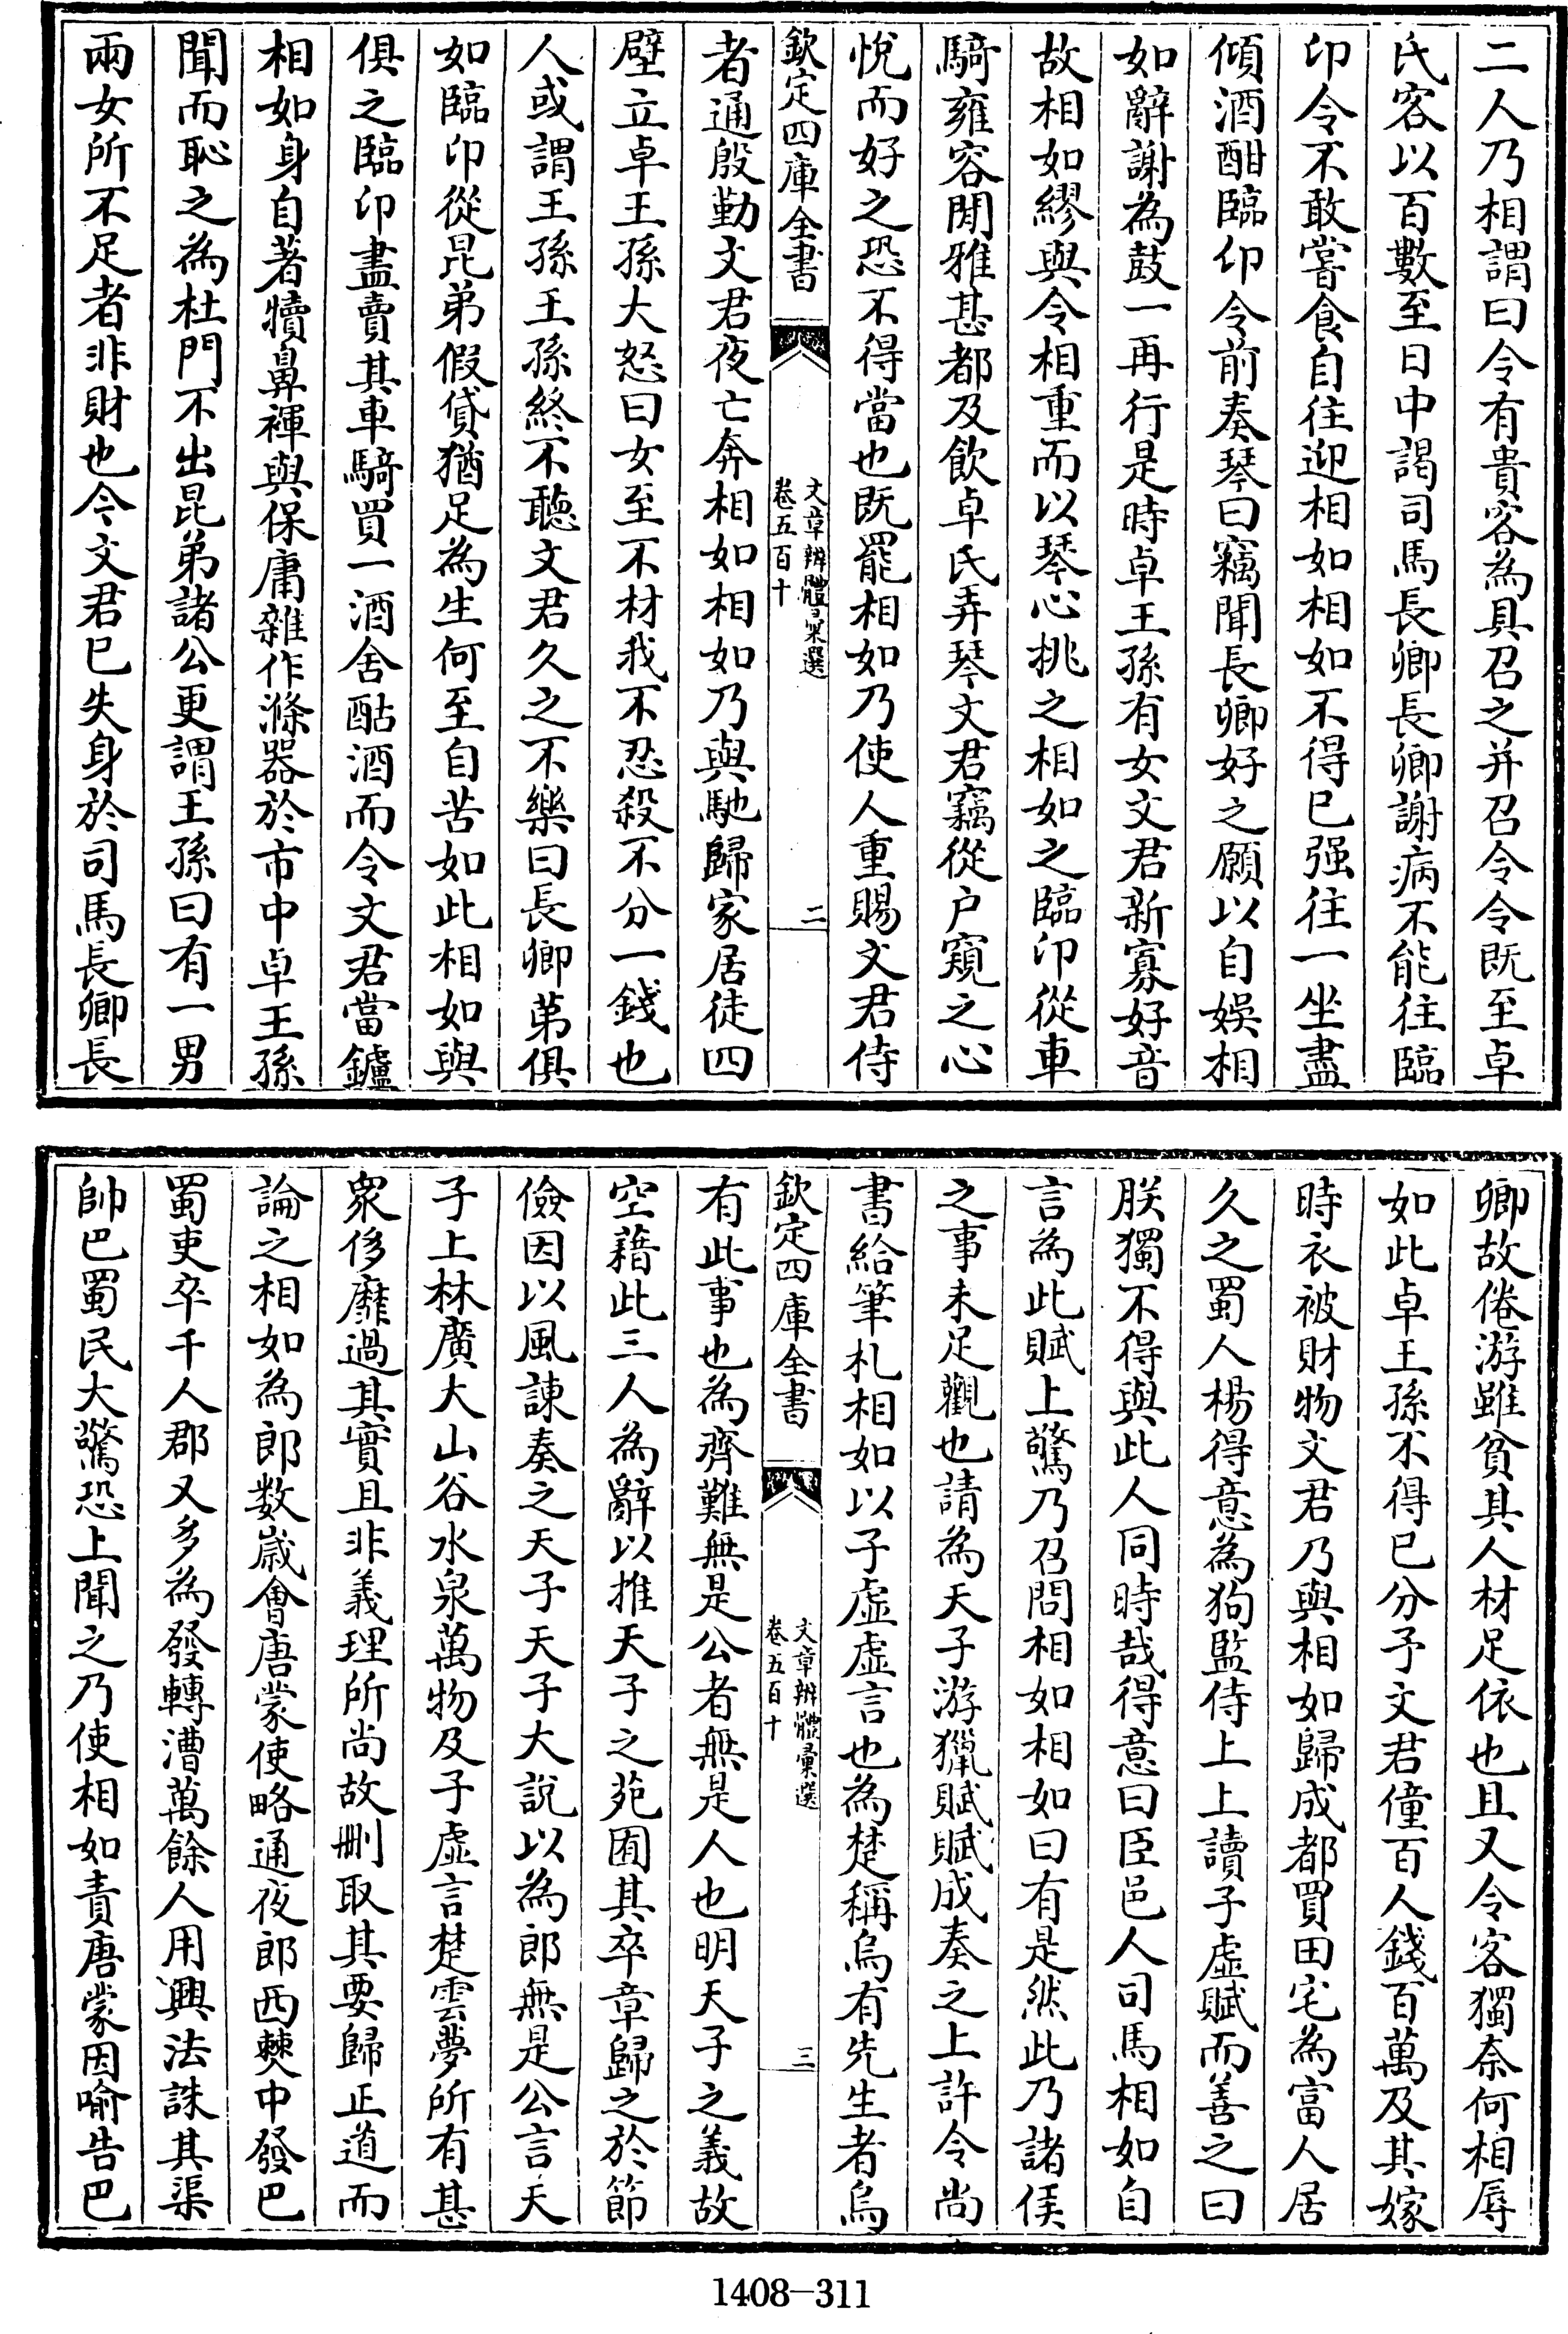 二人乃相謂曰令有貴客為具召之并召令令既至卓
氏客以百數至日中謁司馬長卿長卿謝病不能往臨
卭令不敢嘗食自往迎相如相如不得已强往一坐盡
傾酒酣臨卭令前奏琴曰竊聞長卿好之願以自娛相
如辭謝為鼓一再行是時卓王孫有女文君新寡好音
故相如繆與令相重而以琴心挑之相如之臨卭從車
騎雍容閒雅甚都及飲卓氏弄琴文君竊從户窺之心
悅而好之恐不得當也既罷相如乃使人重賜文君侍
欽定四庫全書
文章辨體彙選
卷五百十
二
者通殷勤文君夜亡奔相如相如乃與馳歸家居徒四
壁立卓王孫大怒曰女至不材我不忍殺不分一錢也
人或謂王孫王孫終不聽文君久之不樂曰長卿弟俱
如臨卭從昆弟假貸猶足為生何至自苦如此相如與
俱之臨卭盡賣其車騎買一酒舍酤酒而令文君當鑪
相如身自著犢鼻褌與保庸雜作滌器於市中卓王孫
聞而恥之為杜門不出昆弟諸公更謂王孫曰有一男
兩女所不足者非財也今文君已失身於司馬長卿長
卿故倦游雖貧其人材足依也且又令客獨奈何相辱
如此卓王孫不得已分予文君僮百人錢百萬及其嫁
時衣被財物文君乃與相如歸成都買田宅為富人居
久之蜀人楊得意為狗監侍上上讀子虛賦而善之曰
朕獨不得與此人同時哉得意曰臣邑人司馬相如自
言為此賦上驚乃召問相如相如曰有是然此乃諸侯
之事未足觀也請為天子游獵賦賦成奏之上許令尚
書給筆札相如以子虛虛言也為楚稱烏有先生者烏
欽定四庫全書
文章辨體彙選
卷五百十
三
有此事也為齊難無是公者無是人也明天子之義故
空藉此三人為辭以推天子之苑囿其卒章歸之於節
儉因以風諫奏之天子天子大説以為郎無是公言天
子上林廣大山谷水泉萬物及子虛言楚雲夢所有甚
衆侈靡過其實且非義理所尚故刪取其要歸正道而
論之相如為郎数嵗會唐蒙使略通夜郎西僰中發巴
蜀吏卒千人郡又多為發轉漕萬餘人用興法誅其渠
帥巴蜀民大驚恐上聞之乃使相如責唐蒙因喻告巴
1408-311